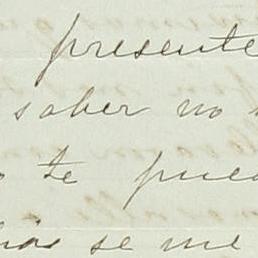 presente
saber no
te pued
se me